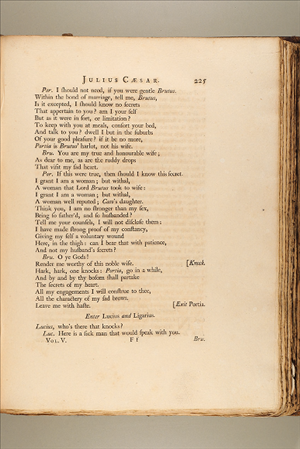 JULIUS CÆSAR. 225
Por. I ſhould not need, if you were gentle Brutus.
Within the bond of marriage, tell me, Brutus,
Is it excepted, I ſhould know no ſecrets
That appertain to you? am I your ſelf
But as it were in ſort, or limitation?
To keep with you at meals, comfort your bed,
And talk to you? dwell I but in the ſuburbs
Of your good pleaſure? if it be no more,
Portia is Brutus' harlot, not his wife.
Bru. You are my true and honourable wife;
As dear to me, as are the ruddy drops
That viſit my ſad heart.
Por. If this were true, then ſhould I know this ſecret.
I grant I am a woman; but withal,
A woman that Lord Brutus took to wife:
I grant I am a woman; but withal,
A woman well reputed; Cato's daughter.
Think you, I am no ſtronger than my ſex,
Being ſo father'd, and ſo husbanded?
Tell me your counſels, I will not diſcloſe them:
I have made ſtrong proof of my conſtancy,
Giving my ſelf a voluntary wound
Here, in the thigh: can I bear that with patience,
And not my husband's ſecrets?
Bru. O ye Gods!
Render me worthy of this noble wife. [Knock.
Hark, hark, one knocks: Portia, go in a while,
And by and by thy boſom ſhall partake
The ſecrets of my heart.
All my engagements I will conſtrue to thee,
All the charactery of my ſad brows.
Leave me with haſte. [Exit Portia.
Enter Lucius and Ligarius.
Lucius, who's there that knocks?
Luc. Here is a ſick man that would ſpeak with you.
VOL. V. F f Bru.